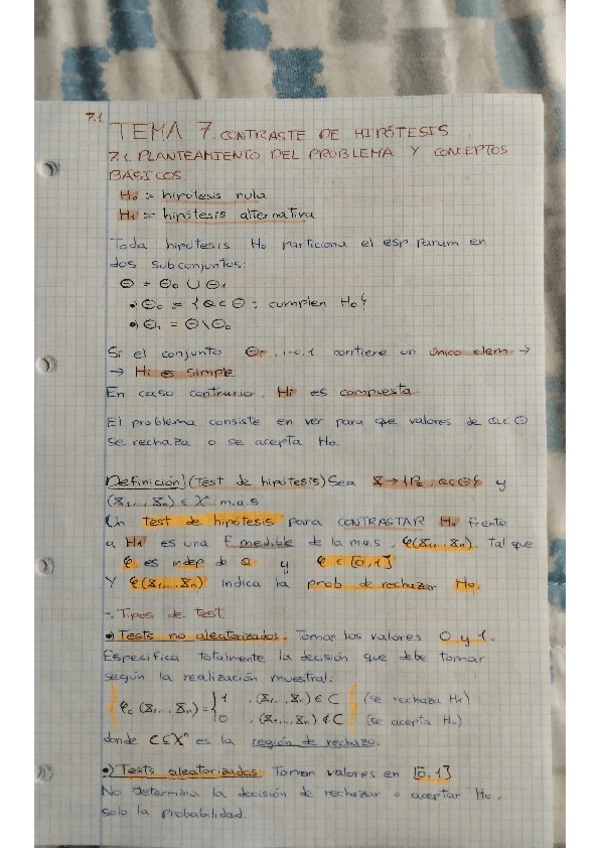 7.1
TEMA 7. CONTRASTE DE HIPÓTESIS
7.1. PLANTEAMIENTO DEL PROBLEMA Y CONCEPTOS
BÁSICOS
H₀ := hipótesis nula
H₁ := hipótesis alternativa
Toda hipótesis H₀ particiona el esp param en
dos subconjuntos:
Θ = Θ₀ ∪ Θ₁
•) Θ₀ = {θ ∈ Θ : cumplen H₀}
•) Θ₁ = Θ\Θ₀
Si el conjunto Θi, i=0,1 contiene un único elem →
→ Hi es simple
En caso contrario, Hi es compuesta
El problema consiste en ver para que valores de θ ∈ Θ
se rechaza o se acepta H₀.
Definición] (Test de hipótesis) Sea X → {Pθ, θ ∈ Θ} y
(X₁, ..., Xₙ) ∈ Xⁿ m.a.s
Un test de hipótesis para CONTRASTAR H₀ frente
a H₁ es una f medible de la m.a.s, φ(X₁, ... Xₙ). Tal que
φ es indep de θ y φ ∈ [0,1]
Y φ(X₁, ... Xₙ) indica la prob de rechazar H₀.
-. Tipos de test.
•) Tests no aleatorizados. Toman los valores 0 y 1.
Especifica totalmente la decisión que debe tomar
según la realización muestral.
{ φc (X₁, ... Xₙ) = { 1 , (X₁, .. Xₙ) ∈ C } (se rechaza H₀)
0 , (X₁, .. Xₙ) ∉ C (se acepta H₀)
donde C ⊆ Xⁿ es la región de rechazo.
•) Tests aleatorizados: Toman valores en [0,1]
No determina la decisión de rechazar o aceptar H₀,
solo la probabilidad.